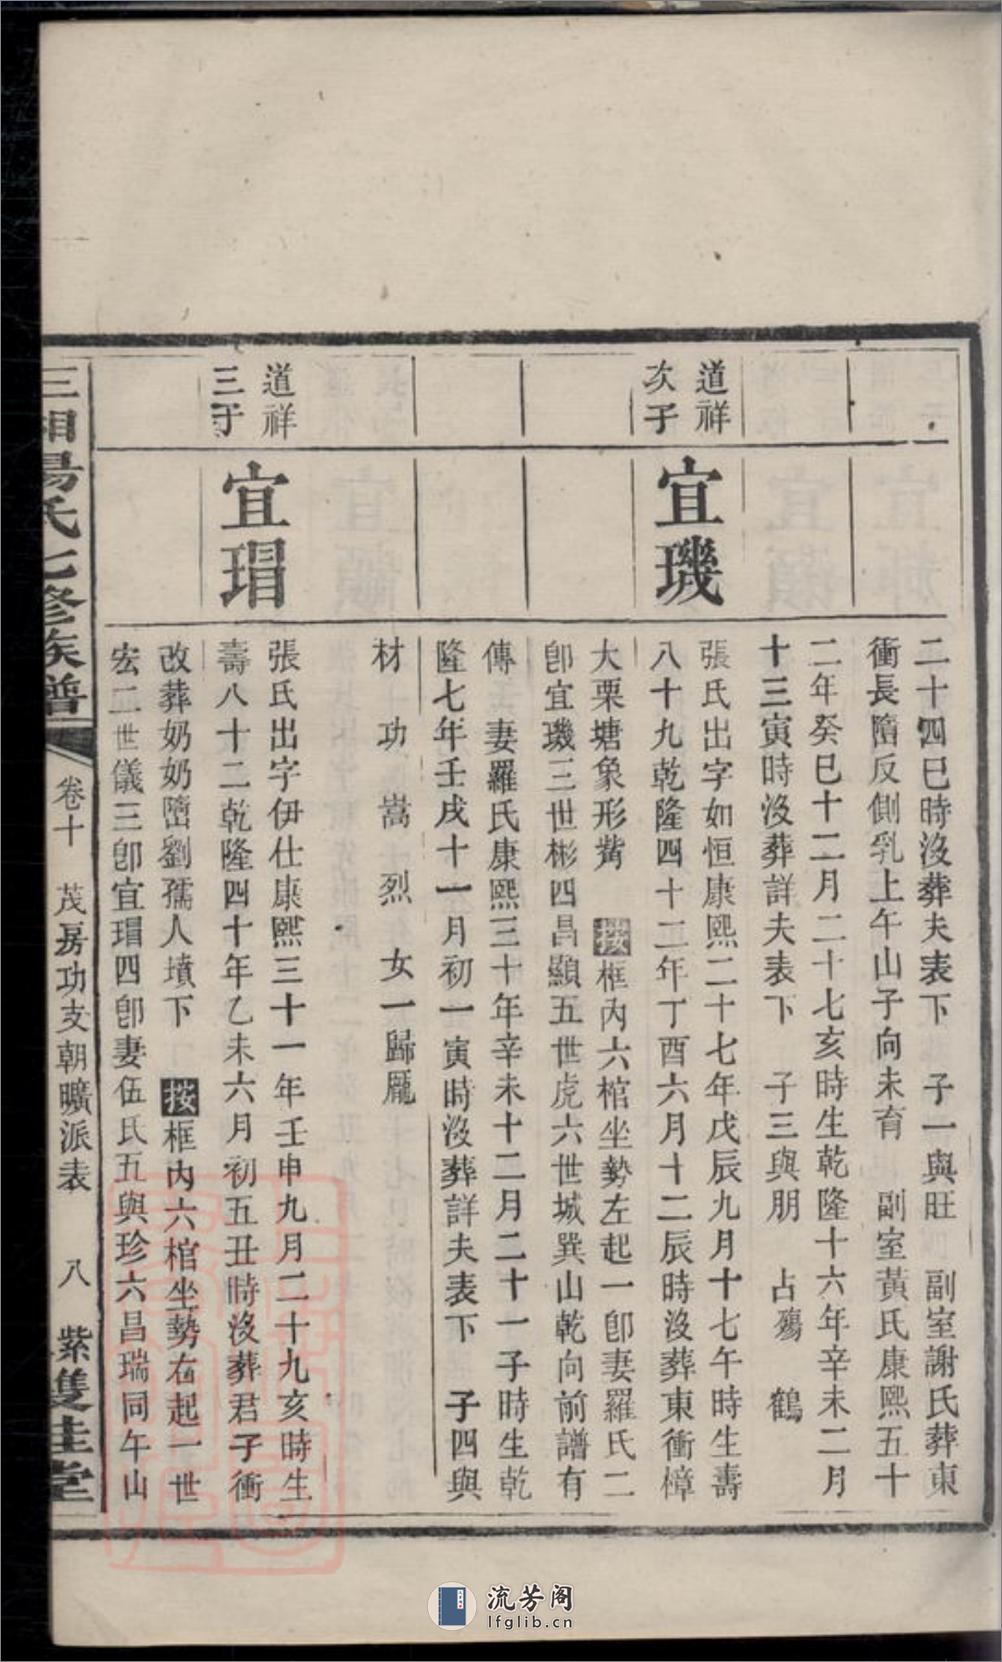 二十四巳時沒葬夫表下 子一與旺 副室謝氏葬東
衝長隋反側乳上午山子向未育 副室黃氏康熙五十
二年癸巳十二月二十七亥時生乾隆十六年辛未二月
十三寅時沒葬詳夫表下 子三與朋 占殤 鶴
道祥
次子
宜璣
張氏出字如恒康熙二十七年戊辰九月十七午時生壽
八十九乾隆四十二年丁酉六月十二辰時沒葬東衝樟
大栗塘象形觜 按框內六棺坐勢左起一卽妻羅氏二
卽宜璣三世彬四昌顯五世虎六世城巽山乾向前譜有
傳 妻羅氏康熙三十年辛未十二月二十一子時生乾
隆七年壬戌十一月初一寅時沒葬詳夫表下 子四與
材 功 嵩 烈 女一歸厖
道祥
三子
宜瑁
張氏出字伊仕康熙三十一年壬申九月二十九亥時生
壽八十二乾隆四十年乙未六月初五丑時沒葬君子衝
改葬奶奶墮劉孺人墳下 按框內六棺坐勢右起一世
宏二世儀三卽宜瑁四卽妻伍氏五與珍六昌瑞同午山
三湘湯氏七修族譜 卷十 茂房功支朝曠派表 八 紫雙桂堂
流芳阁
lfglib.cn